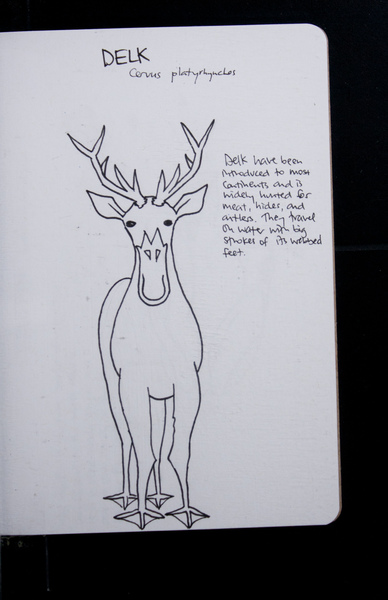 DELK
Cervus platyrhynchos
Delk have been
introduced to most
continents and is
widely hunted for
meat, hides, and
antlers. They travel
on water with big
strokes of its webbed
feet.